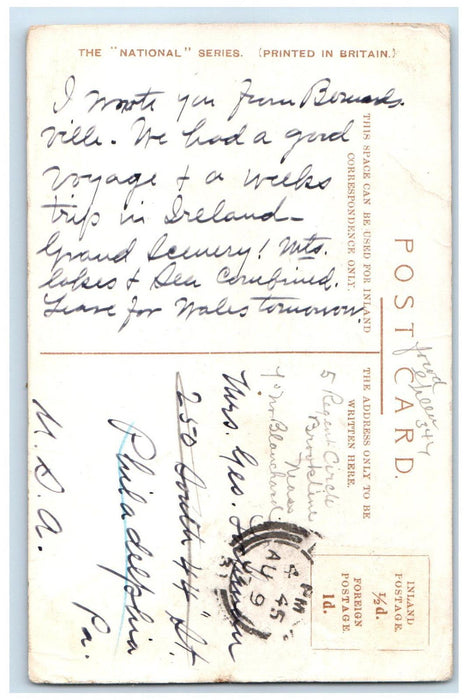 THE "NATIONAL" SERIES. (PRINTED IN BRITAIN.)
I wrote you from Bernards
ville. We had a good
voyage + a weeks
trip in Ireland –
Grand Scenery! Mts.
lakes + Sea Combined.
Leave for Wales tomorrow.
THIS SPACE CAN BE USED FOR INLAND
CORRESPONDENCE ONLY.
POST CARD.
THE ADDRESS ONLY TO BE
WRITTEN HERE.
INLAND
POSTAGE
½d.
FOREIGN
POSTAGE
1d.
4 45 PM
AU 9
5 Regent Circle
Brookline
Mass
c/o Mr Blanchard
Mrs. Geo.
250 South 44" St.
Philadelphia
Pa.
U. S. A.